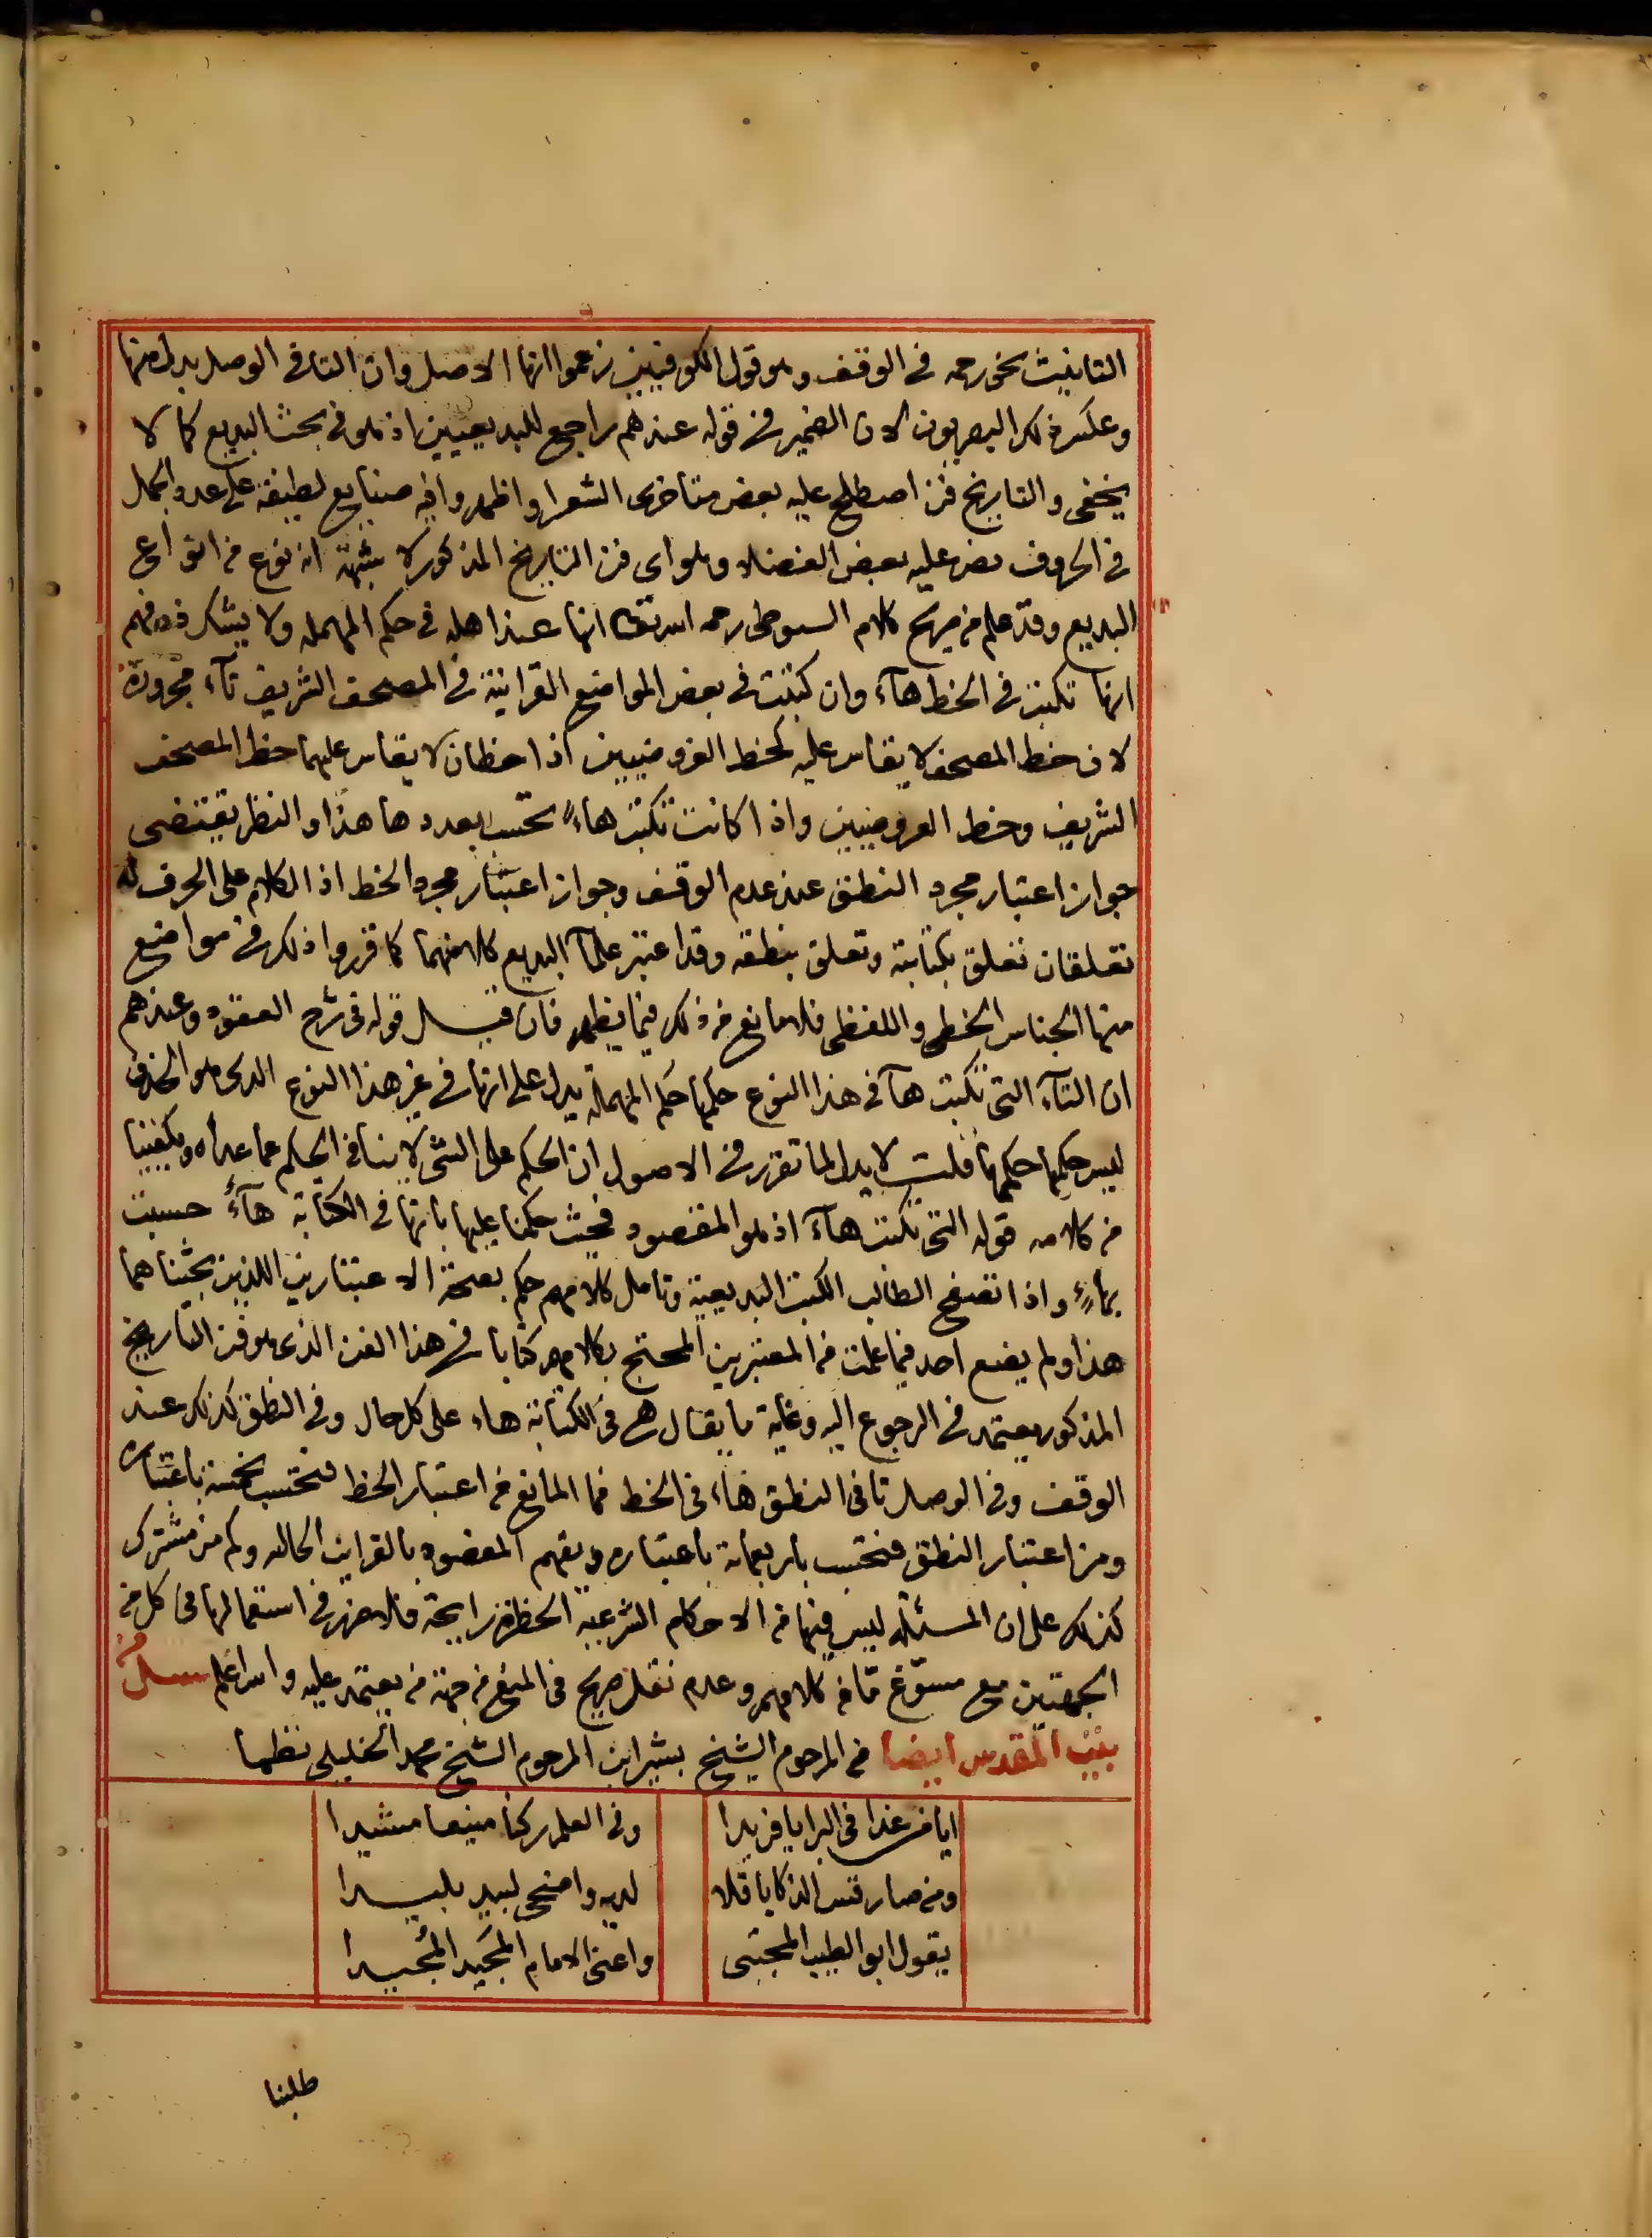 التانيث نحو رحمه في الوقف وهو قول الكوفيين زعموا انها الاصل وان التا في الوصل بدل منها
وعكس ذلك البصريون لان الضمير في قوله عندهم راجع للبديعيين اذ هو في بحث البديع كما لا
يخفى والتاريخ فن اصطلح عليه بعض متاخرى الشعرا واظهروا فيه صنايع لطيفة على عدد الجمل
في الحروف نص عليه بعض الفضلا وهو اى فن التاريخ المذكور لا شبهة انه نوع من انواع
البديع وقد علم من صريح كلام السيوطى رحمه الله تعالى انها عند اهله في حكم المهمله ولا يشك ذو فهم
انها تكتب في الخط هآء وان كتبت في بعض المواضع القرانية في المصحف الشريف تآء مجرورة
لان خط المصحف لا يقاس عليه كخط العروضيين اذ اخطان لا يقاس عليهما خط المصحف
الشريف وخط العروضيين واذا كانت تكتب هاء تحسب بعددها هذا والنظر يقتضى
جواز اعتبار مجرد النطق عند عدم الوقف وجواز اعتبار مجرد الخط اذ الكلام على الحرف له
تعلقان تعلق بكتابته وتعلق بنطقه وقد اعتبر علمآ البديع كلا منهما كما قرروا ذلك في مواضع
منها الجناس الخطى واللفظى فلا مانع من ذلك فيما يظهر فان قيل قوله في شرح العقود وعندهم
ان التآء التى تكتب هآ في هذا النوع حكمها حكم المهملة يدل على انها في غير هذا النوع الذى هو الحذف
ليس حكمها حكمها قلت لا يدل لما تقرر في الاصول ان الحكم على الشى لا ينافي الحكم عما عداه ويكفينا
من كلامه قوله التى تكتب هآء اذ هو المقصود فحيث حكمنا عليها بانها في الكتابة هآءً حسبت
بهاءٍ واذا تصفح الطالب الكتب البديعية وتامل كلامهم حكم بصحة الاعتبارين اللذين بحثناهما
هذا ولم يضع احد فيما علمت من المعتبرين المحتج بكلامهم كتابا في هذا الفن الذى هو فن التاريخ
المذكور يعتمد في الرجوع اليه وغاية ما يقال هى في الكتابة هاء على كل حال وفي النطق كذلك عند
الوقف وفي الوصل تا في النطق هاء في الخط فما المانع من اعتبار الخط فتحتسب بخمسة باعتباره
ومن اعتبار النطق فتحتسب باربعماية باعتباره ويفهم المقصود بالقراين الحاليه وكم من مشترك
كذلك على ان المسئلة ليس فيها من الاحكام الشرعية الحظر رايحة فلا ضرر في استعمالها في كل من
الجهتين مع مسوّغ مّا من كلامهم وعدم نقل صريح في المنع من جهة من يعتمد عليه والله اعلم سئل من
بيت المقدس ايضا من المرحوم الشيخ بشير ابن المرحوم الشيخ محمد الخليلى نظما
ايا من غدا في البرايا فريدا وفي العلم ركنا منيعا مشيدا
ومن صار قس الذكا باقلا لديه واضحى لبيد بليدا
يقول ابو الطيب المجتبى واعنى الامام المجَيد المُجيدا
طلبنا